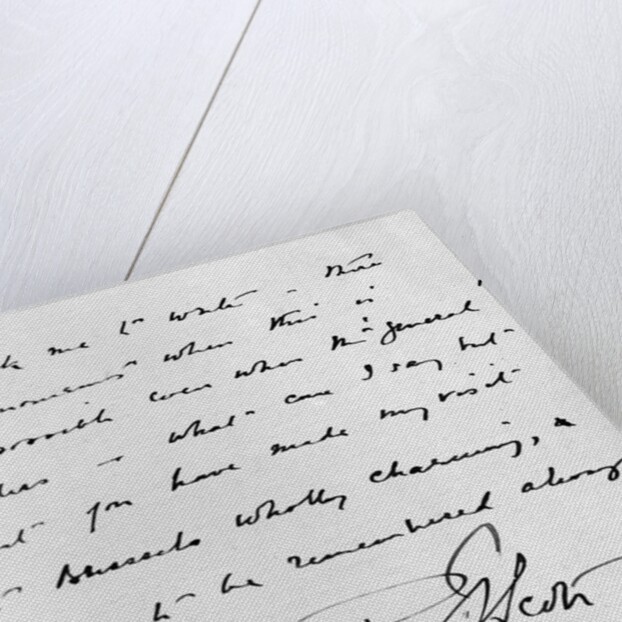 me to write – there
moments when this is
possible even when the "general"
– what can I say but
you have made my visit
Brussels wholly charming, &
to be remembered always
Scott